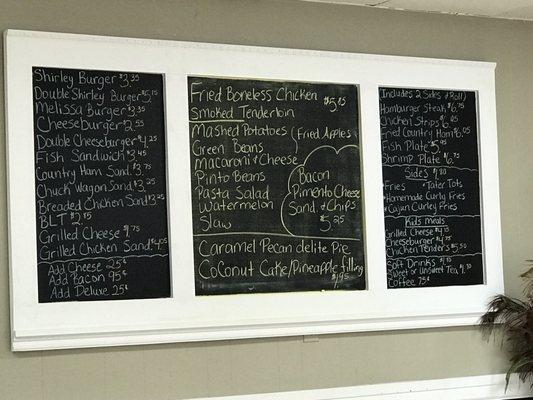 Shirley Burger $3.35
Double Shirley Burger $5.15
Melissa Burger $3.35
Cheeseburger $2.55
Double Cheeseburger $4.25
Fish Sandwich $3.45
Country Ham Sand. $3.75
Chuck Wagon Sand. $3.25
Breaded Chicken Sand $3.25
BLT $2.85
Grilled Cheese $1.75
Grilled Chicken Sand $4.05
Add Cheese 25¢
Add Bacon 95¢
Add Deluxe 25¢
Fried Boneless Chicken $5.85
Smoked Tenderloin
Mashed Potatoes
Green Beans
Macaroni & Cheese
Pinto Beans
Pasta Salad
Watermelon
Slaw
Fried Apples
Bacon
Pimento Cheese
Sand. & Chips
$5.25
Caramel Pecan delite Pie
Coconut Cake/Pineapple filling
$1.95
Includes 2 Sides & Roll
Hamburger Steak $6.75
Chicken Strips $6.05
Fried Country Ham $6.05
Fish Plate $5.95
Shrimp Plate $6.75
Sides $1.80
Fries Tater Tots
Homemade Curly Fries
Cajun Curley Fries
Kids meals
Grilled Cheese $4.15
Cheeseburger $4.75
Chicken Tenders $5.50
Soft Drinks
Sweet or Unsweet Tea $1.30
Coffee 75¢